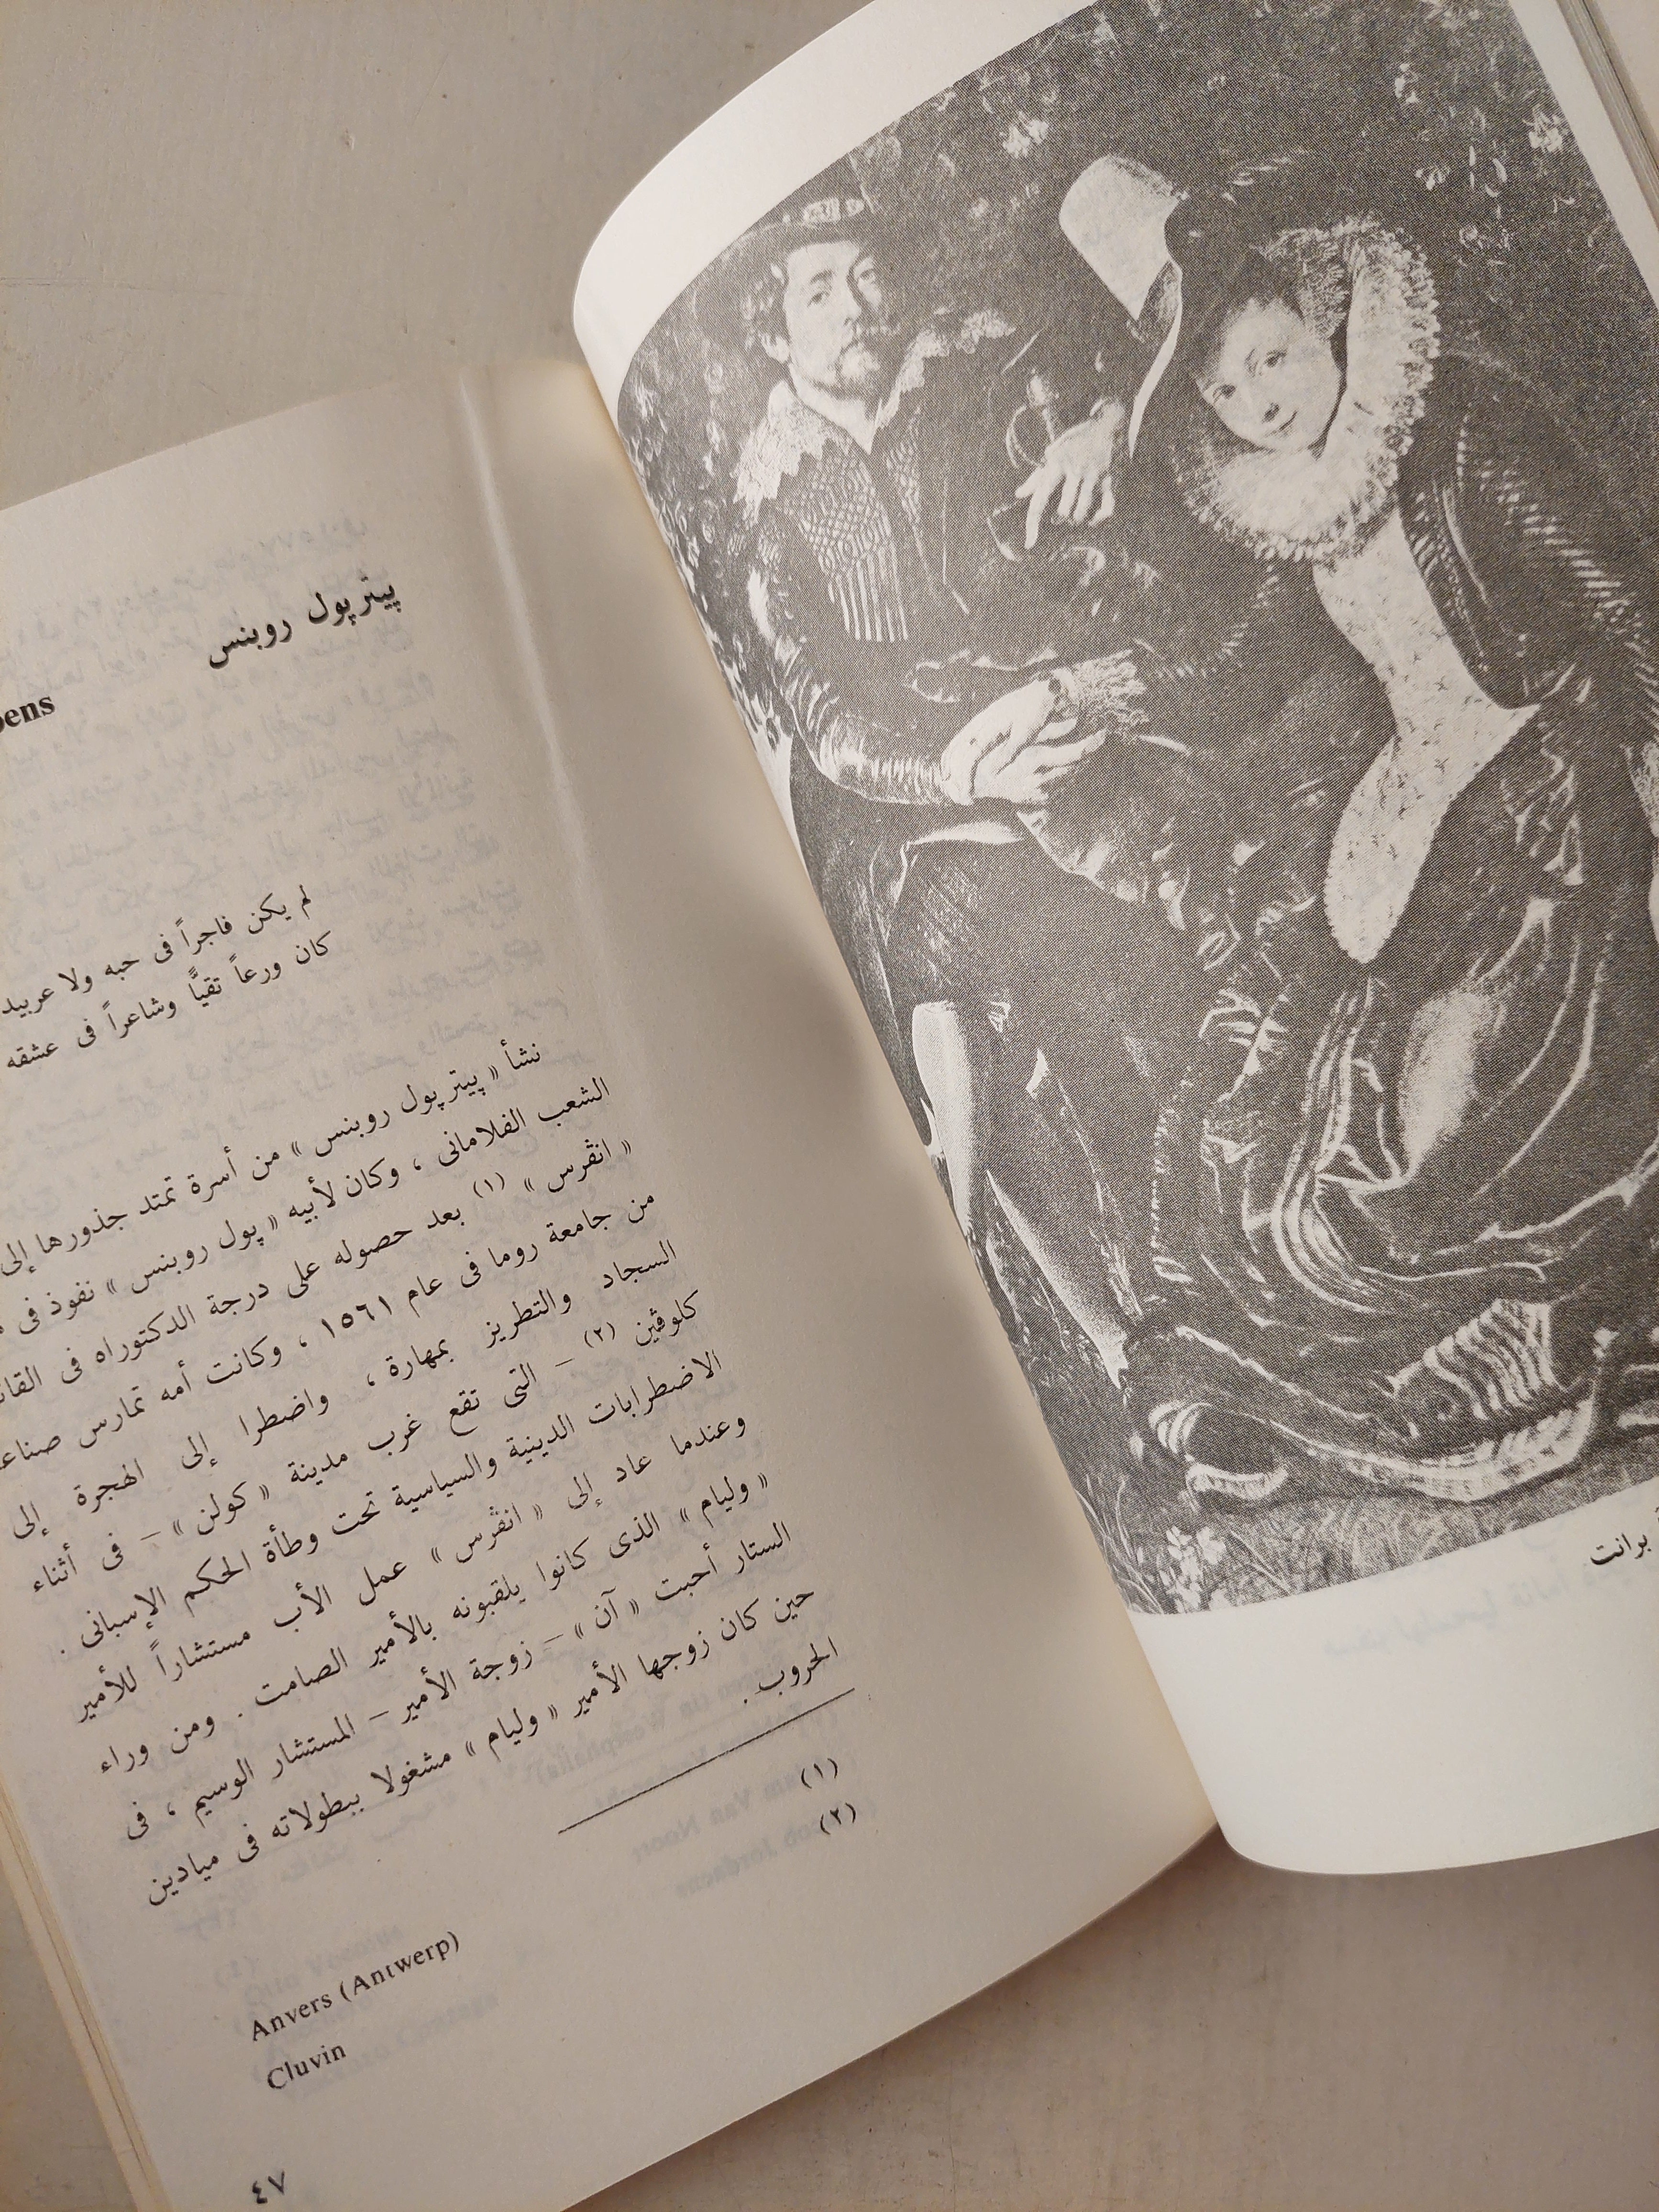 پيتر پول روبنس
bens
لم يكن فاجراً فى حبه ولا عربيد
كان ورعاً تقيًّا وشاعراً فى عشقه
نشأ « پيتر پول روبنس » من أسرة تمتد جذورها إلى
الشعب الفلامانى ، وكان لأبيه « پول روبنس » نفوذ فى
« انڤرس » (١) بعد حصوله على درجة الدكتوراه فى
من جامعة روما فى عام ١٥٦١ ، وكانت أمه تمارس
السجاد والتطريز بمهارة ، واضطرا إلى الهجرة إلى
كلوڤين (٢) – التى تقع غرب مدينة « كولن » – فى أثناء
الاضطرابات الدينية والسياسية تحت وطأة الحكم الإسبانى .
وعندما عاد إلى « انڤرس » عمل الأب مستشاراً للأمير
« وليام » الذى كانوا يلقبونه بالأمير الصامت . ومن وراء
الستار أحبت « آن » – زوجة الأمير – المستشار الوسيم ، فى
حين كان زوجها الأمير « وليام » مشغولا ببطولاته فى ميادين
الحروب .
(١) Anvers (Antwerp)
(٢) Cluvin
٤٧
برانت